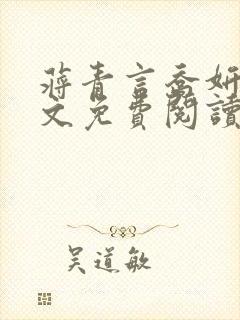 蔣青言喬妍
文免費閱讀
吴道敏